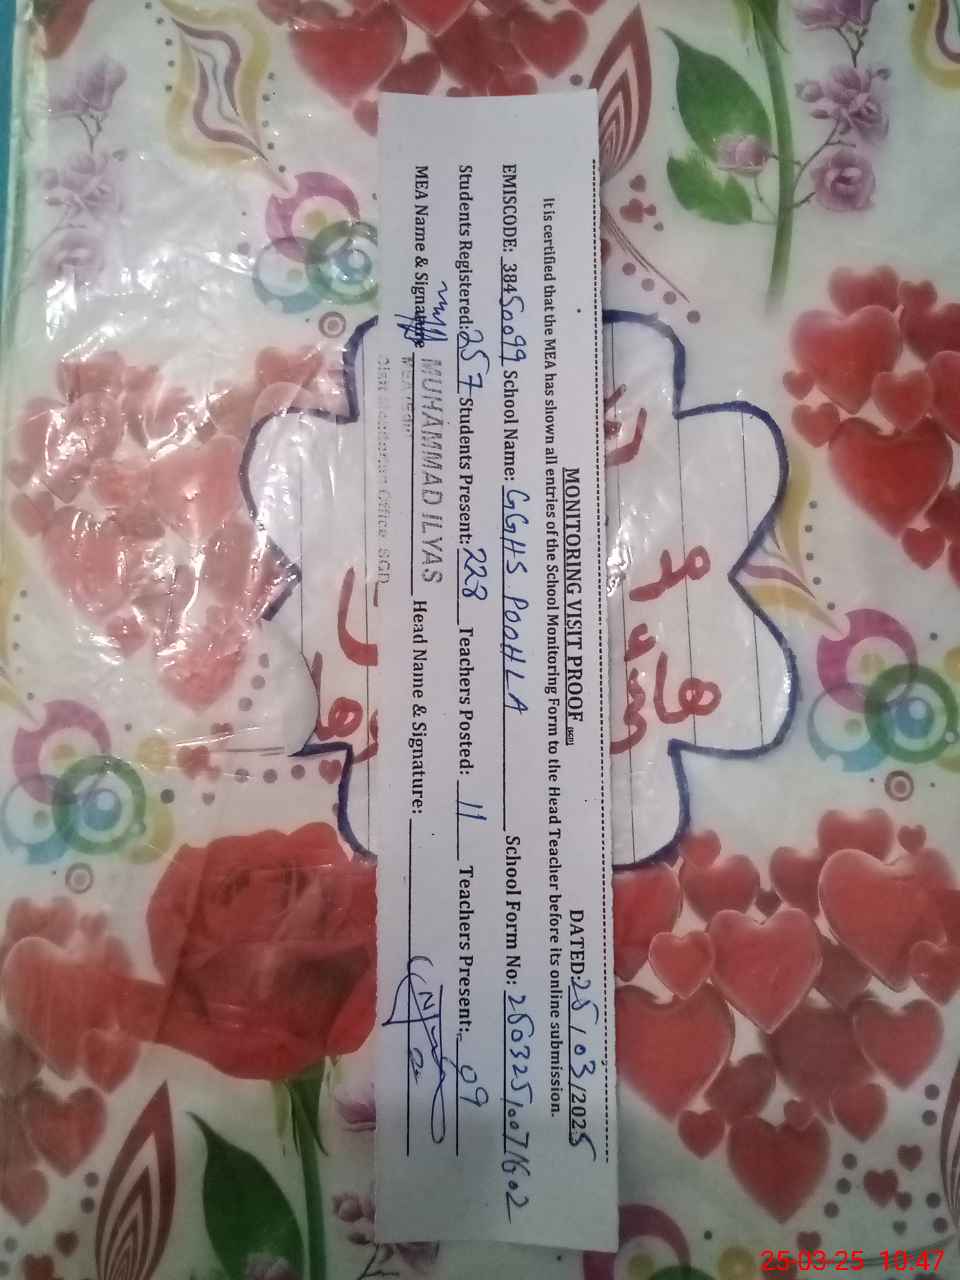 MONITORING VISIT PROOF (SED) DATED: 25/03/2025
It is certified that the MEA has shown all entries of the School Monitoring Form to the Head Teacher before its online submission.
EMISCODE: 38450099 School Name: GGHS POOHLA School Form No:
Students Registered: 257 Students Present: 228 Teachers Posted: 11 Teachers Present: 09
MEA Name & Signature MUHAMMAD ILYAS Head Name & Signature:
25-03-25 10:47